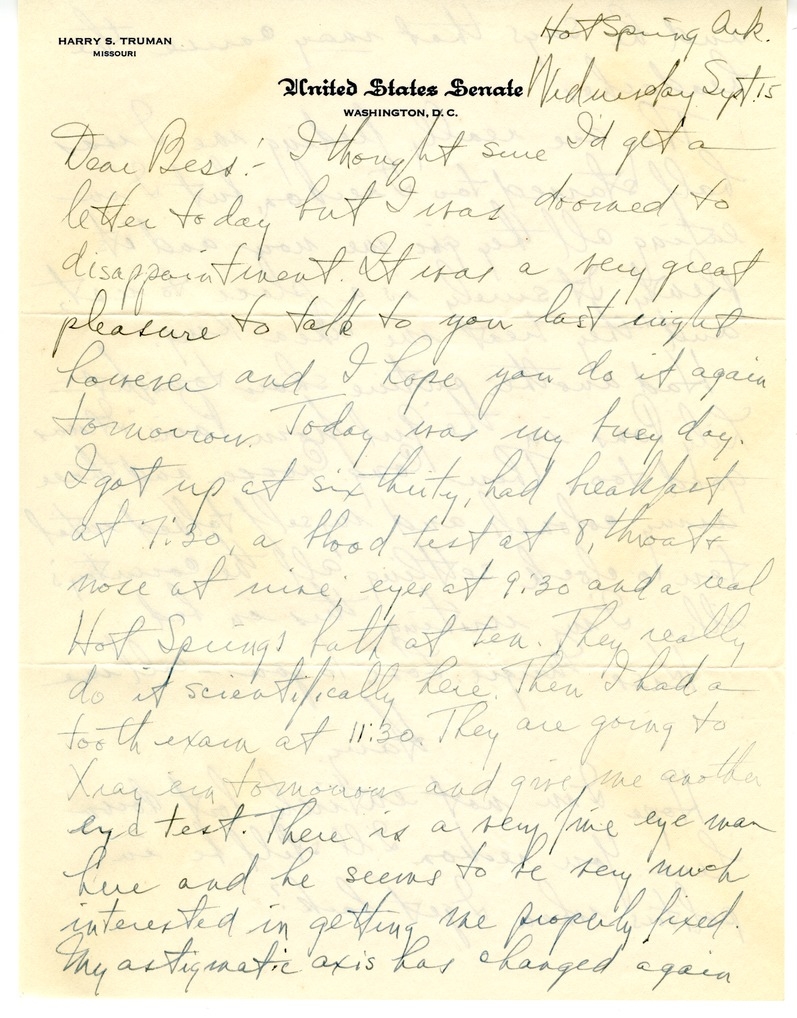 HARRY S. TRUMAN
MISSOURI
Hot Spring Ark.
United States Senate
Wednesday Sept. 15
WASHINGTON, D. C.
Dear Bess:- I thought sure I'd get a
letter today but I was doomed to
disappointment. It was a very great
pleasure to talk to you last night
however and I hope you do it again
tomorrow. Today was my busy day.
I got up at six thirty, had breakfast
at 7:30, a blood test at 8, throat &
nose at nine, eyes at 9:30 and a real
Hot Springs bath at ten. They really
do it scientifically here. Then I had a
tooth exam at 11:30. They are going to
Xray em tomorrow and give me another
eye test. There is a very fine eye man
here and he seems to be very much
interested in getting me properly fixed.
My astigmatic axis has changed again